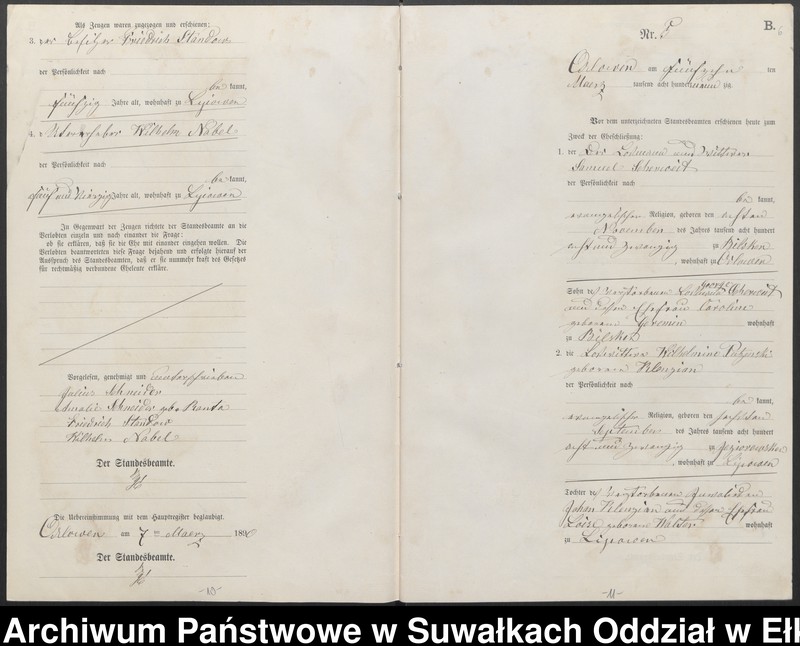 Als Zeugen waren zugezogen und erschienen:
3. der Besitzer Friedrich Standow
der Persönlichkeit nach
be kannt,
fünfzig Jahre alt, wohnhaft zu Lipowen
4. Wilhelm Nabel
der Persönlichkeit nach
be kannt,
fünf und vierzig Jahre alt, wohnhaft zu Lipowen
In Gegenwart der Zeugen richtete der Standesbeamte an die
Verlobten einzeln und nach einander die Frage:
ob sie erklären, daß sie die Ehe mit einander eingehen wollen. Die
Verlobten beantworteten diese Frage bejahend und erfolgte hierauf der
Ausspruch des Standesbeamten, daß er sie nunmehr kraft des Gesetzes
für rechtmäßig verbundene Eheleute erkläre.
Vorgelesen, genehmigt und unterschrieben
Julius Schneider
Amalie Schneider geb. Randa
Friedrich Standow
Wilhelm Nabel
Der Standesbeamte.
Die Uebereinstimmung mit dem Hauptregister beglaubigt.
Orlowen am 7 ten Maerz 189
Der Standesbeamte.
-10-
B.
6
Nr. 5
Orlowen am fünfzehn ten
Maerz tausend acht hundert
Vor dem unterzeichneten Standesbeamten erschienen heute zum
Zweck der Eheschließung:
1. der Der Losmann und Wittwer
Samuel
der Persönlichkeit nach
be kannt,
evangelischer Religion, geboren den achten
November des Jahres tausend acht hundert
acht und zwanzig zu Bilsken
, wohnhaft zu Orlowen
Sohn des verstorbenen Losmann George
und dessen Ehefrau Caroline
geborene wohnhaft
zu Bilsken
2. die Loswittwe Wilhelmine
geborene Klenzian
der Persönlichkeit nach
be kannt,
evangelischer Religion, geboren den sechsten
September des Jahres tausend acht hundert
acht und zwanzig zu Jeziorowsken
, wohnhaft zu Lipowen
Tochter des verstorbenen Invaliden
Johan Klenzian und dessen Ehefrau
Loise geborene Walter wohnhaft
zu Lipowen
-11-
Archiwum Państwowe w Suwałkach Oddział w Eł